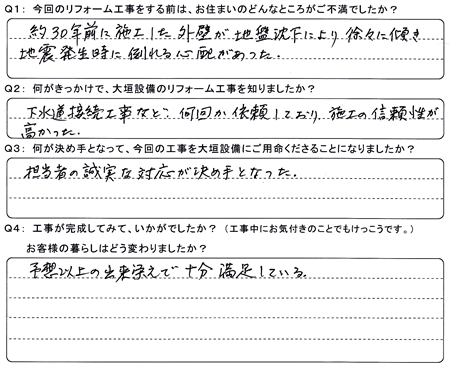 Q1：今回のリフォーム工事をする前は、お住まいのどんなところがご不満でしたか？
約30年前に施工した外壁が地盤沈下により徐々に傾き
地震発生時に倒れる心配があった．
Q2：何がきっかけで、大垣設備のリフォーム工事を知りましたか？
下水道接続工事など、何回か依頼しており、施工の信頼性が
高かった．
Q3：何が決め手となって、今回の工事を大垣設備にご用命くださることになりましたか？
担当者の誠実な対応が決め手となった．
Q4：工事が完成してみて、いかがでしたか？（工事中にお気付きのことでもけっこうです。）
お客様の暮らしはどう変わりましたか？
予想以上の出来栄えで十分満足している．